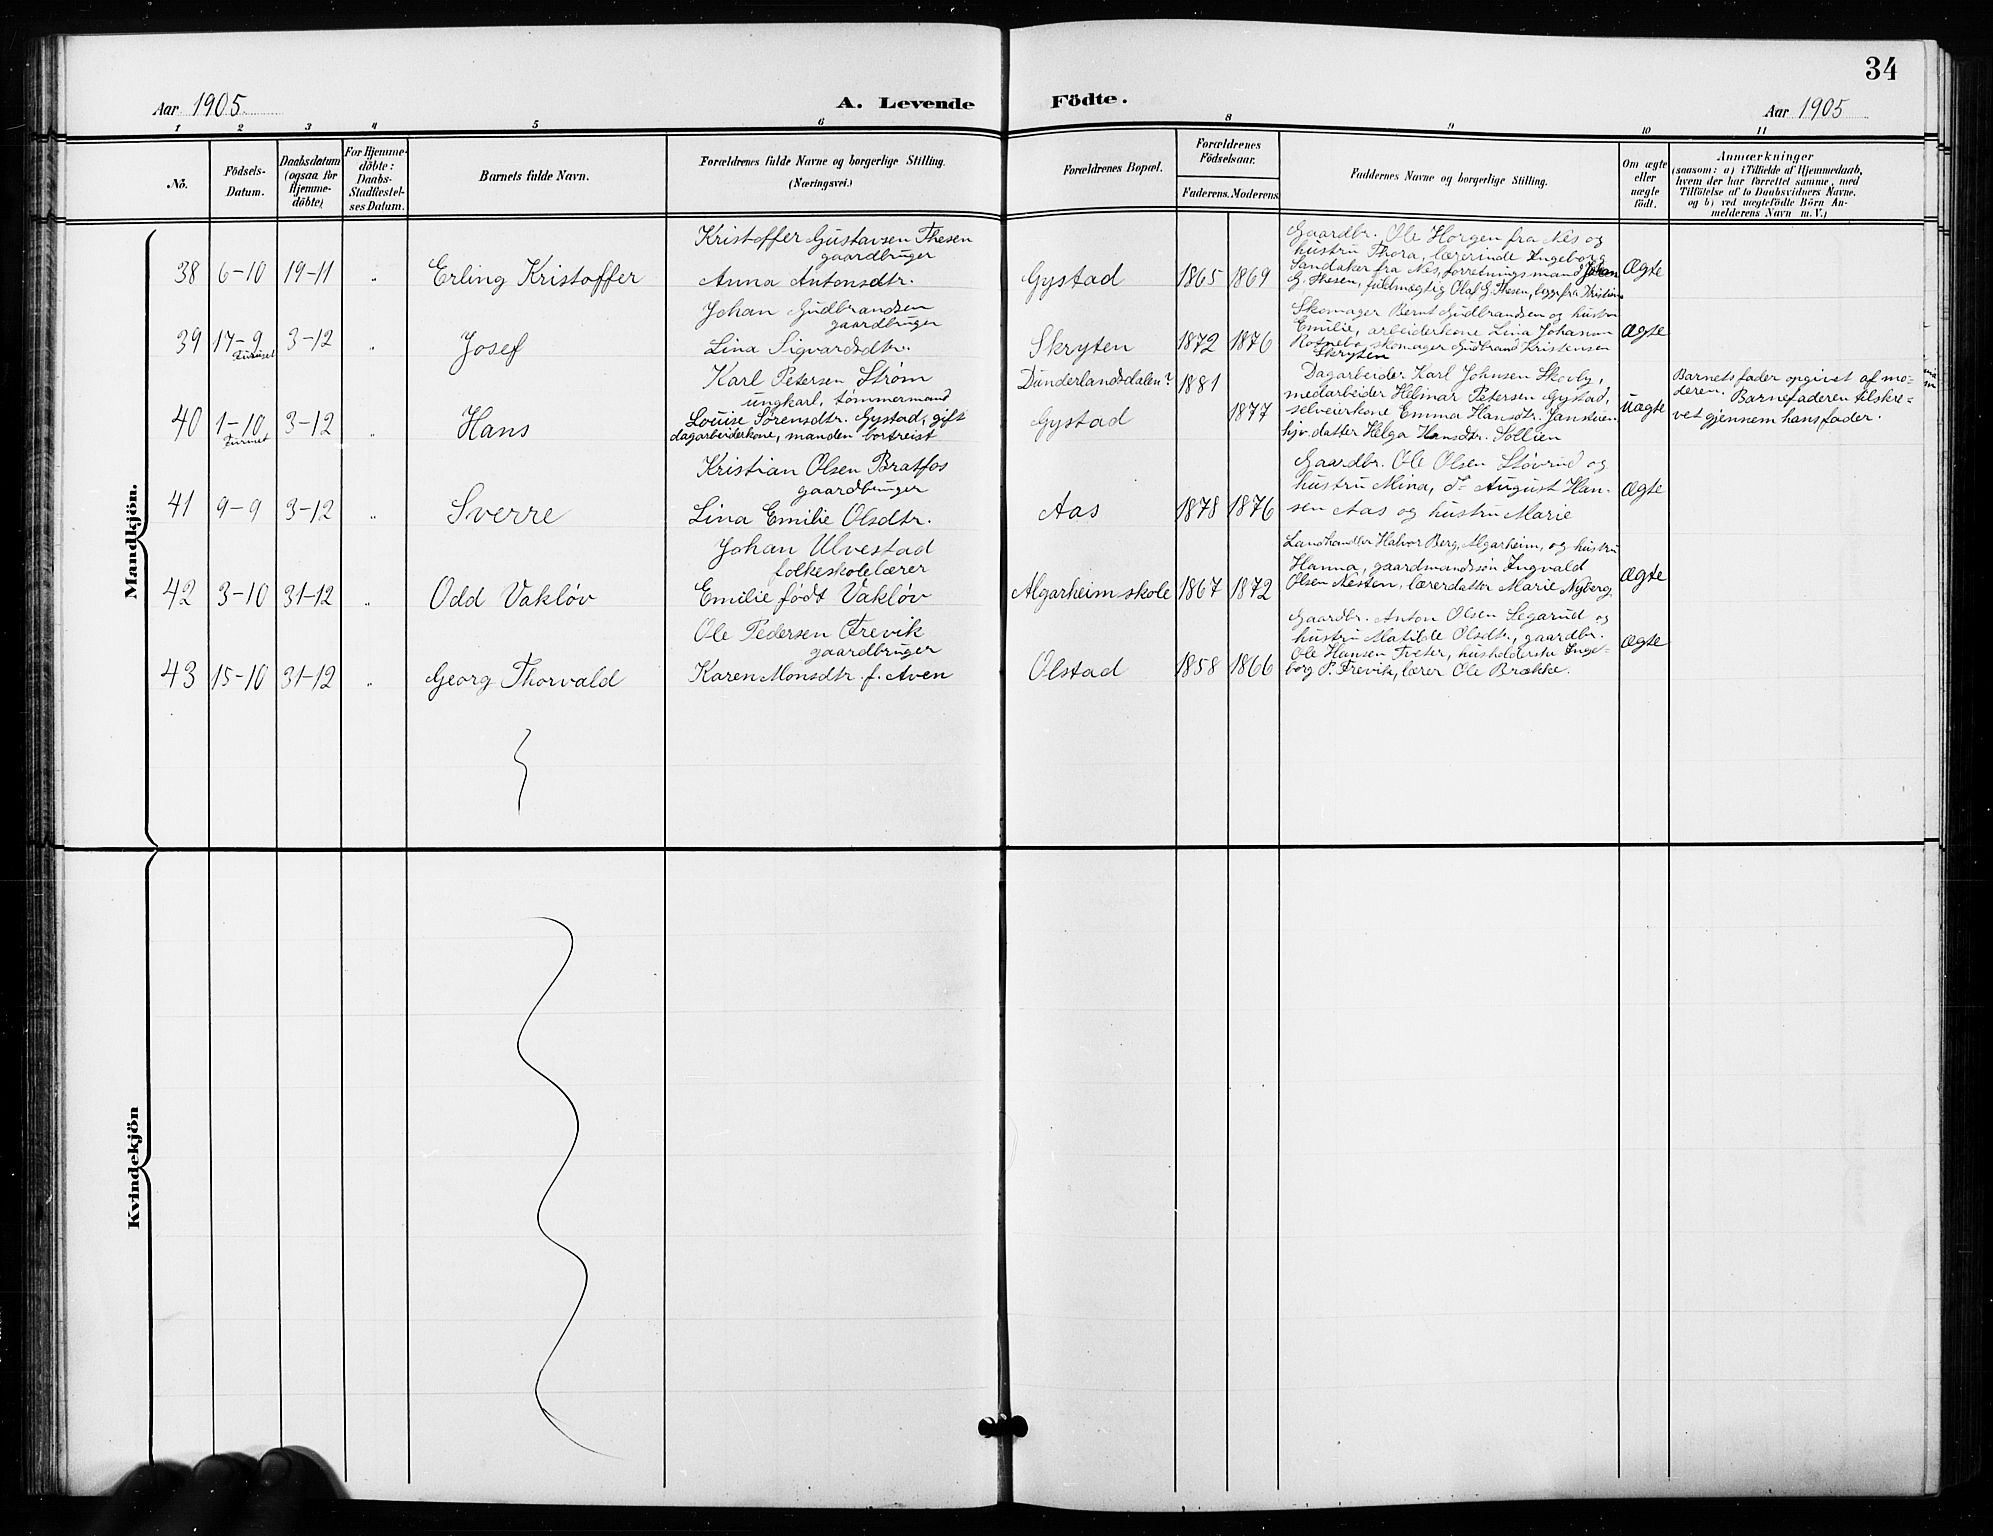 34
Aar 1905 A. Levende Födte. Aar 1905
1 2 3 4 5 6 8 9 10 11
No.
Födsels-
Datum.
Daabsdatum
(ogsaa for
Hjemme-
döbte)
For Hjemme-
döbte:
Daabs-
Stadfæstel-
ses Datum.
Barnets fulde Navn.
Forældrenes fulde Navne og borgerlige Stilling.
(Næringsvei.)
Forældrenes Bopæl.
Forældrenes
Födselsaar.
Faderens. Moderens.
Faddernes Navne og borgerlige Stilling.
Om ægte
eller
uægte
födt.
Anmærkninger
(saasom: a) i Tilfælde af Hjemmedaab,
hvem der har forrettet samme, med
Tilföielse af to Daabsvidners Navne.
og b) ved uægtefödte Börn An-
melderens Navn m. V.)
Mandkjön.
38 6-10 19-11 " Erling Kristoffer
Kristoffer Gustavsen Thesen
gaardbruger
Anna Antonsdtr.
Gystad 1865 1869
Gaardbr. Ole Horgen fra Nes og
hustru Thora, lærerinde Ingeborg
Sandaker fra Nes, forretningsmand Johan
G. Thesen, fuldmægtig Olaf G. Thesen, begge fra Kristiania
Ægte
39 17-9 3-12 " Josef
Johan Gudbrandsen
gaardbruger
Lina Sigvardsdtr.
Skryten 1872 1876
Skomager Bernt Gudbrandsen og hustru
Emilie, arbeiderkone Lina Johanne
Rotnebo, skomager Gudbrand Kristensen
Skryten
Ægte
40 1-10 3-12 " Hans
Karl Petersen Strøm
ungkarl, tømmermand
Louise Sørensdtr. Gystad, gift
dagarbeiderkone, manden bortreist
Dunderlandsdalen? 1881
Gystad 1877
Dagarbeider Karl Johnsen Skovly,
medarbeider Helmar Petersen Gystad,
selveierkone Emma Hansdtr. Jansteien
hjv. datter Helga Hansdtr. Sollien
Uægte
Barnets fader opgivet af mo-
deren. Barnefaderen tilskre-
vet gjennem hans fader.
41 9-9 3-12 " Sverre
Kristian Olsen Bratfos
gaardbruger
Lina Emilie Olsdtr.
Aas 1878 1876
Gaardbr. Ole Olsen Støvrud og
hustru Mina, do August Han-
sen Aas og hustru Marie
Ægte
42 3-10 31-12 " Odd Vakløv
Johan Ulvestad
folkeskolelærer
Emilie født Vakløv
Algarheim skole 1867 1872
Landhandler Halvor Berg, Algarheim, og hustru
Hanna, gaardmandssøn Ingvald
Olsen Nesten, lærerdatter Marie Nyberg
Ægte
43 15-10 31-12 " Georg Thorvald
Ole Pedersen Frevik
gaardbruger
Karen Monsdtr. f. Aven
Olstad 1858 1866
Gaardbr. Anton Olsen Segarud og
hustru Matilde Olsdtr., gaardbr.
Ole Hansen Tveter, husholderske Inge-
borg P. Frevik, lærer Ole Brække.
Ægte
Kvindekjön